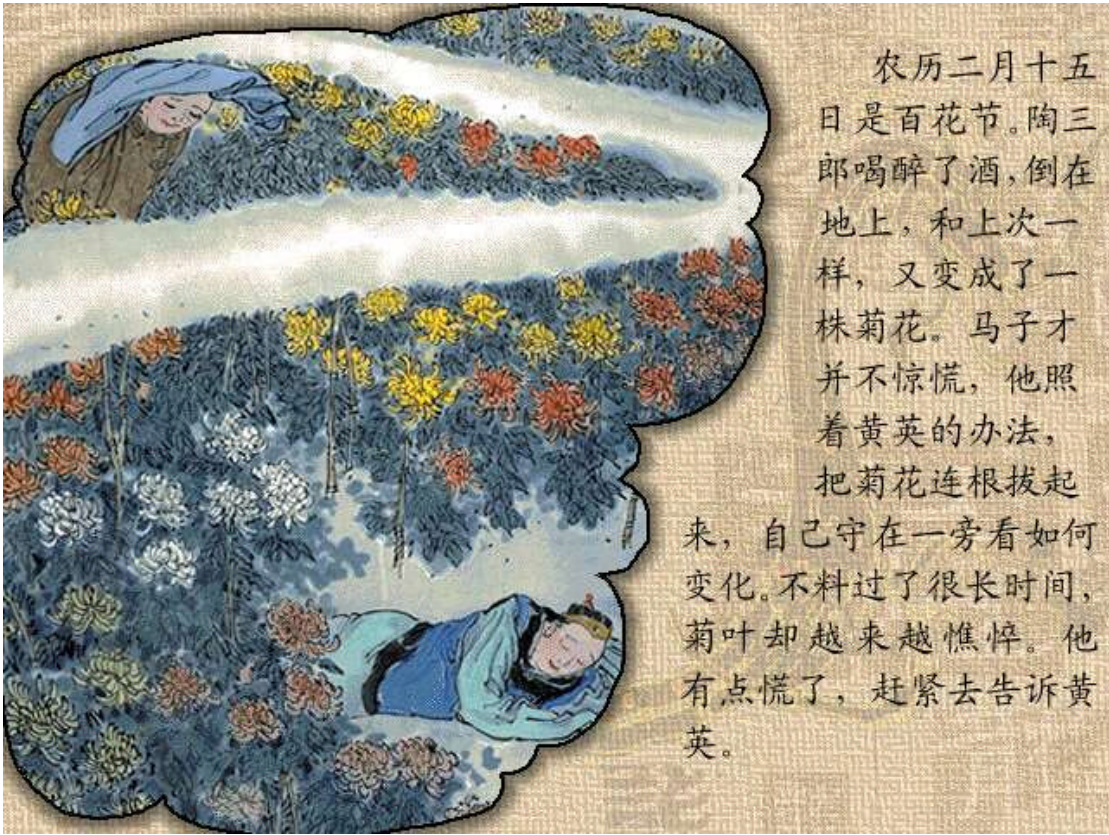 农历二月十五
日是百花节。陶三
郎喝醉了酒，倒在
地上，和上次一
样，又变成了一
株菊花。马子才
并不惊慌，他照
着黄英的办法，
把菊花连根拔起
来，自己守在一旁看如何
变化。不料过了很长时间，
菊叶却越来越憔悴。他
有点慌了，赶紧去告诉黄
英。